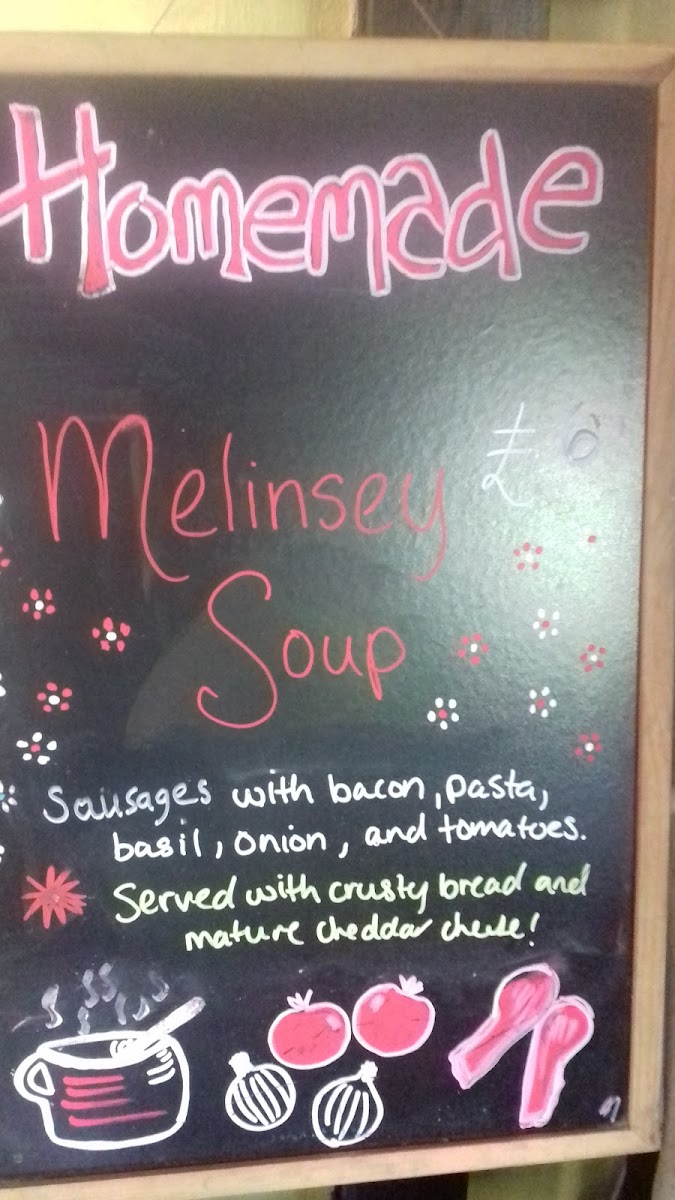 Homemade
Melinsey £
Soup
Sausages with bacon, pasta,
basil, onion, and tomatoes.
Served with crusty bread and
mature cheddar cheese!